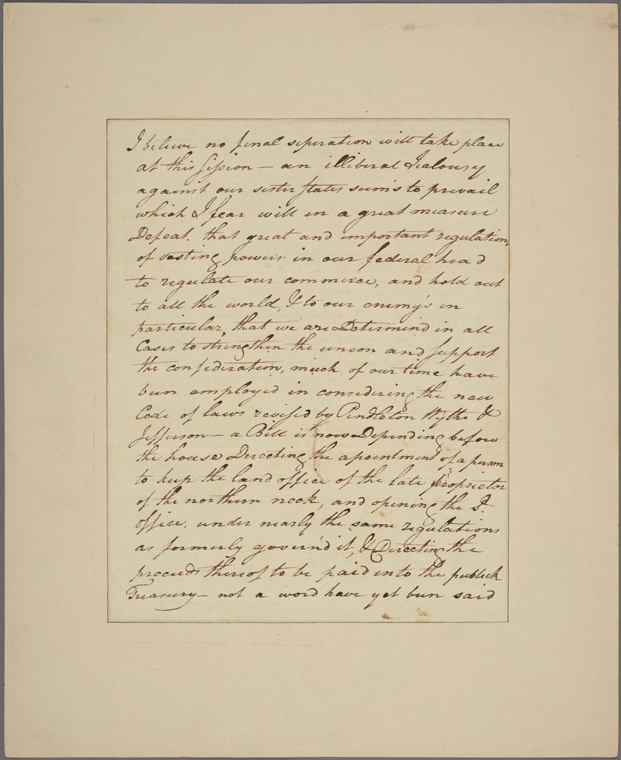 I believe no final seperation will take place
at this Session — an illiberal Jealousy
against our sister States seem's to prevail
which I fear will in a great measure
Defeat, that great and important regulation,
of vesting powers in our federal head
to regulate our commerce, and hold out
to all the world, & to our enemy's in
particular, that we are Determin'd in all
Cases to strengthen the union and support
the confederation, much of our time have
been employed in considering the new
Code of laws revised by Pendleton Wythe &
Jefferson — a Bill is now Depending before
the house Directing the apointment of a person
to keep the land office of the late proprietor
of the northern neck, and opening the Sd.
office, under nearly the same regulations
as formerly govern'd it, & Directing the
proceeds thereof to be paid into the publick
Treasury — not a word have yet been said